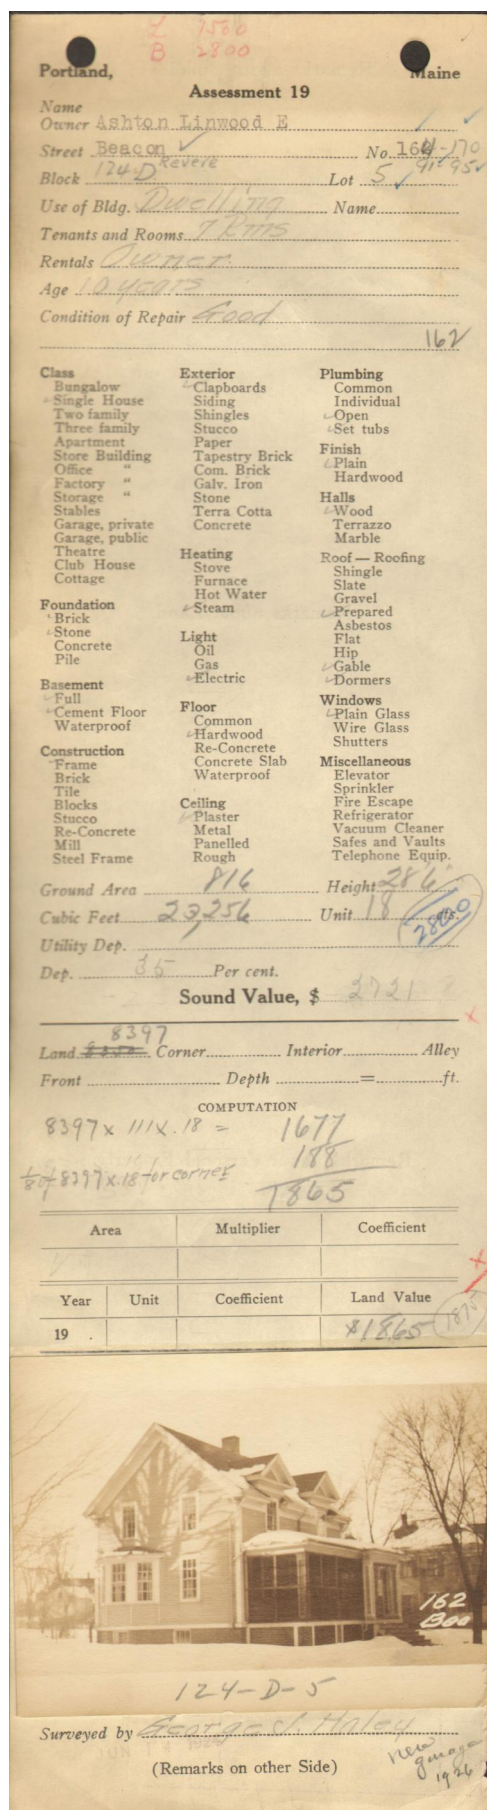 L 1500
B 2800
Portland, Maine
Assessment 19
Name
Owner Ashton Linwood E
Street Beacon No. 164-170
Revere 91-95
Block 124-D Lot 5
Use of Bldg. Dwelling Name
Tenants and Rooms 7 Rms
Rentals Owner
Age 10 years
Condition of Repair Good
162
Class
Bungalow
Single House
Two family
Three family
Apartment
Store Building
Office "
Factory "
Storage "
Stables
Garage, private
Garage, public
Theatre
Club House
Cottage
Foundation
Brick
Stone
Concrete
Pile
Basement
Full
Cement Floor
Waterproof
Construction
Frame
Brick
Tile
Blocks
Stucco
Re-Concrete
Mill
Steel Frame
Exterior
Clapboards
Siding
Shingles
Stucco
Paper
Tapestry Brick
Com. Brick
Galv. Iron
Stone
Terra Cotta
Concrete
Heating
Stove
Furnace
Hot Water
Steam
Light
Oil
Gas
Electric
Floor
Common
Hardwood
Re-Concrete
Concrete Slab
Waterproof
Ceiling
Plaster
Metal
Panelled
Rough
Plumbing
Common
Individual
Open
Set tubs
Finish
Plain
Hardwood
Halls
Wood
Terrazzo
Marble
Roof — Roofing
Shingle
Slate
Gravel
Prepared
Asbestos
Flat
Hip
Gable
Dormers
Windows
Plain Glass
Wire Glass
Shutters
Miscellaneous
Elevator
Sprinkler
Fire Escape
Refrigerator
Vacuum Cleaner
Safes and Vaults
Telephone Equip.
Ground Area 816 Height 28'6"
Cubic Feet 23,256 Unit 18 cts.
2800
Utility Dep.
Dep. 35 Per cent.
Sound Value, $ 2721
8397
Land Corner Interior Alley
Front Depth = ft.
COMPUTATION
8397 x 111 x .18 = 1677
188
1/8 of 8397 x .18 for corner
1865
Area Multiplier Coefficient
Year Unit Coefficient Land Value
19 . $1865 1875
162
Bea
124-D-5
Surveyed by George J. Haley
(Remarks on other Side)
New
garage
1926